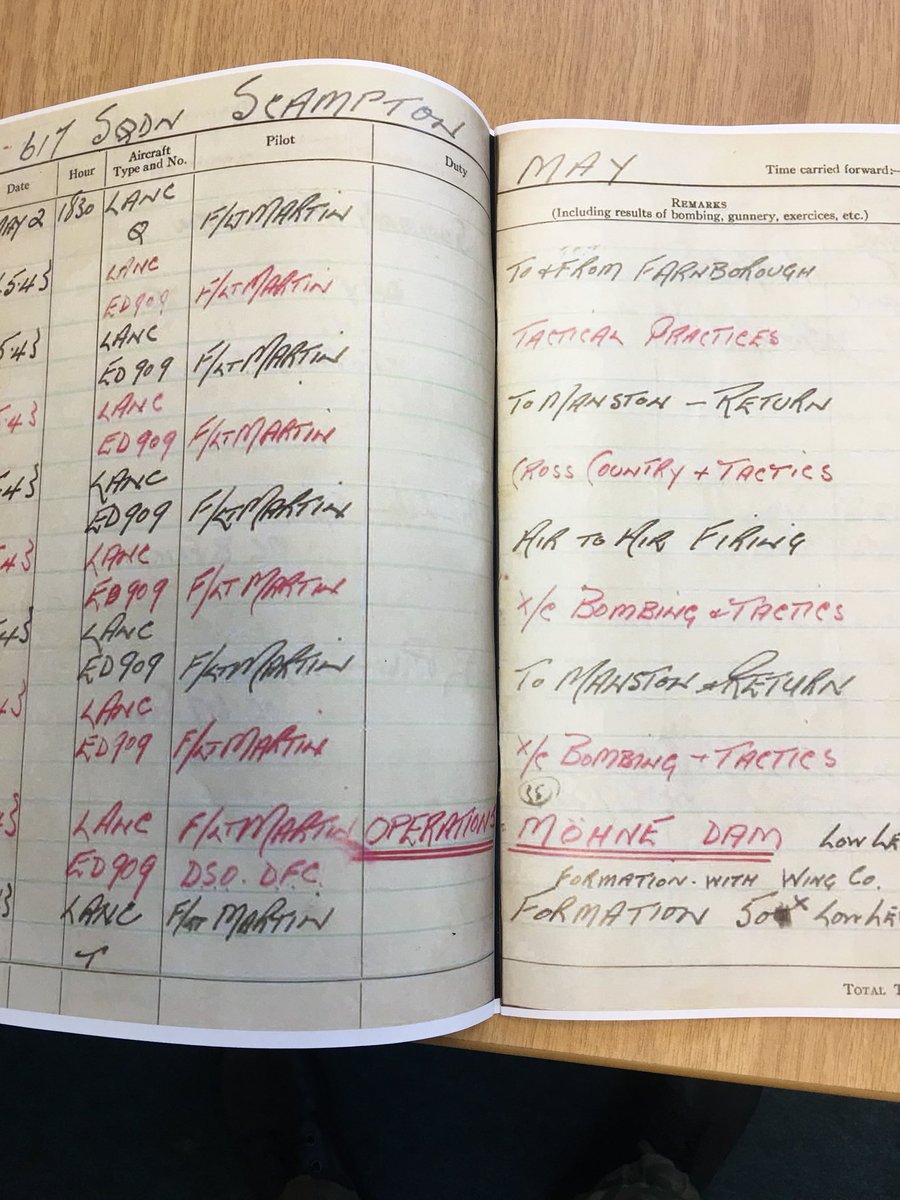 617 SQDN SCAMPTON
Date Hour Aircraft Type and No. Pilot Duty
MAY 2 1830 LANC F/LT MARTIN
Q
LANC F/LT MARTIN
ED909
LANC
ED909 F/LT MARTIN
LANC
ED909 F/LT MARTIN
LANC
ED909 F/LT MARTIN
LANC
ED909 F/LT MARTIN
LANC
ED909 F/LT MARTIN
LANC
ED909 F/LT MARTIN
LANC F/LT MARTIN OPERATIONS
ED909 DSO. DFC
LANC F/LT MARTIN
T
MAY Time carried forward:—
REMARKS
(Including results of bombing, gunnery, exercices, etc.)
TO & FROM FARNBOROUGH
TACTICAL PRACTICES
TO MANSTON – RETURN
CROSS COUNTRY + TACTICS
AIR TO AIR FIRING
X/C BOMBING & TACTICS
TO MANSTON & RETURN
X/C BOMBING + TACTICS
MÖHNE DAM LOW LE
FORMATION. WITH WING CO.
FORMATION LOW LE
TOTAL T